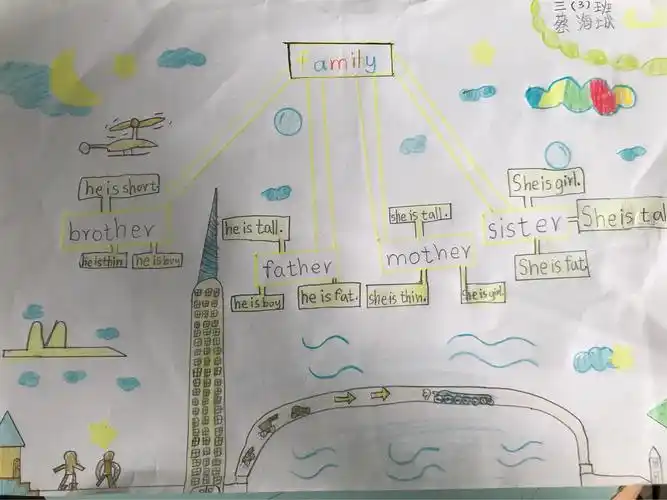 三(3)班
蔡海
family
he is short
She is girl.
he is tall.
she is tall.
brother
sister
She is tal
father
mother
he is thin
he is boy
She is fat.
he is boy
he is fat.
she is thin.
she is girl